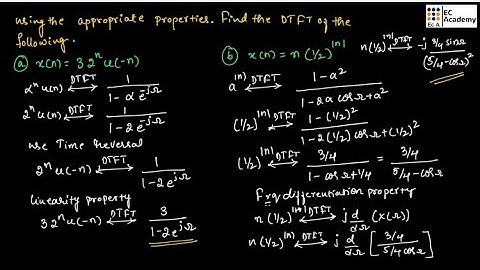 using the appropriate properties. Find the DTFT of the
following.
EC
Academy
Ec A
(a) x(n) = 3 2ⁿ u(-n)
αⁿ u(n) ←DTFT→ 1 / (1 - α e^-jΩ)
2ⁿ u(n) ←DTFT→ 1 / (1 - 2 e^-jΩ)
use Time Reversal
2ⁿ u(-n) ←DTFT→ 1 / (1 - 2 e^jΩ)
linearity property
3 2ⁿ u(-n) ←DTFT→ 3 / (1 - 2 e^jΩ)
(b) x(n) = n (1/2)^|n|
a^|n| ←DTFT→ (1 - a²) / (1 - 2a cosΩ + a²)
(1/2)^|n| ←DTFT→ (1 - (1/2)²) / (1 - 2(1/2) cosΩ + (1/2)²)
(1/2)^|n| ←DTFT→ (3/4) / (1 - cosΩ + 1/4) = (3/4) / (5/4 - cosΩ)
Frq differentiation property
n (1/2)^|n| ←DTFT→ j d/dΩ (X(Ω))
n (1/2)^|n| ←DTFT→ j d/dΩ [(3/4) / (5/4 cosΩ)]
n (1/2)^|n| ←DTFT→ -j (3/4 sinΩ) / (5/4 - cosΩ)²